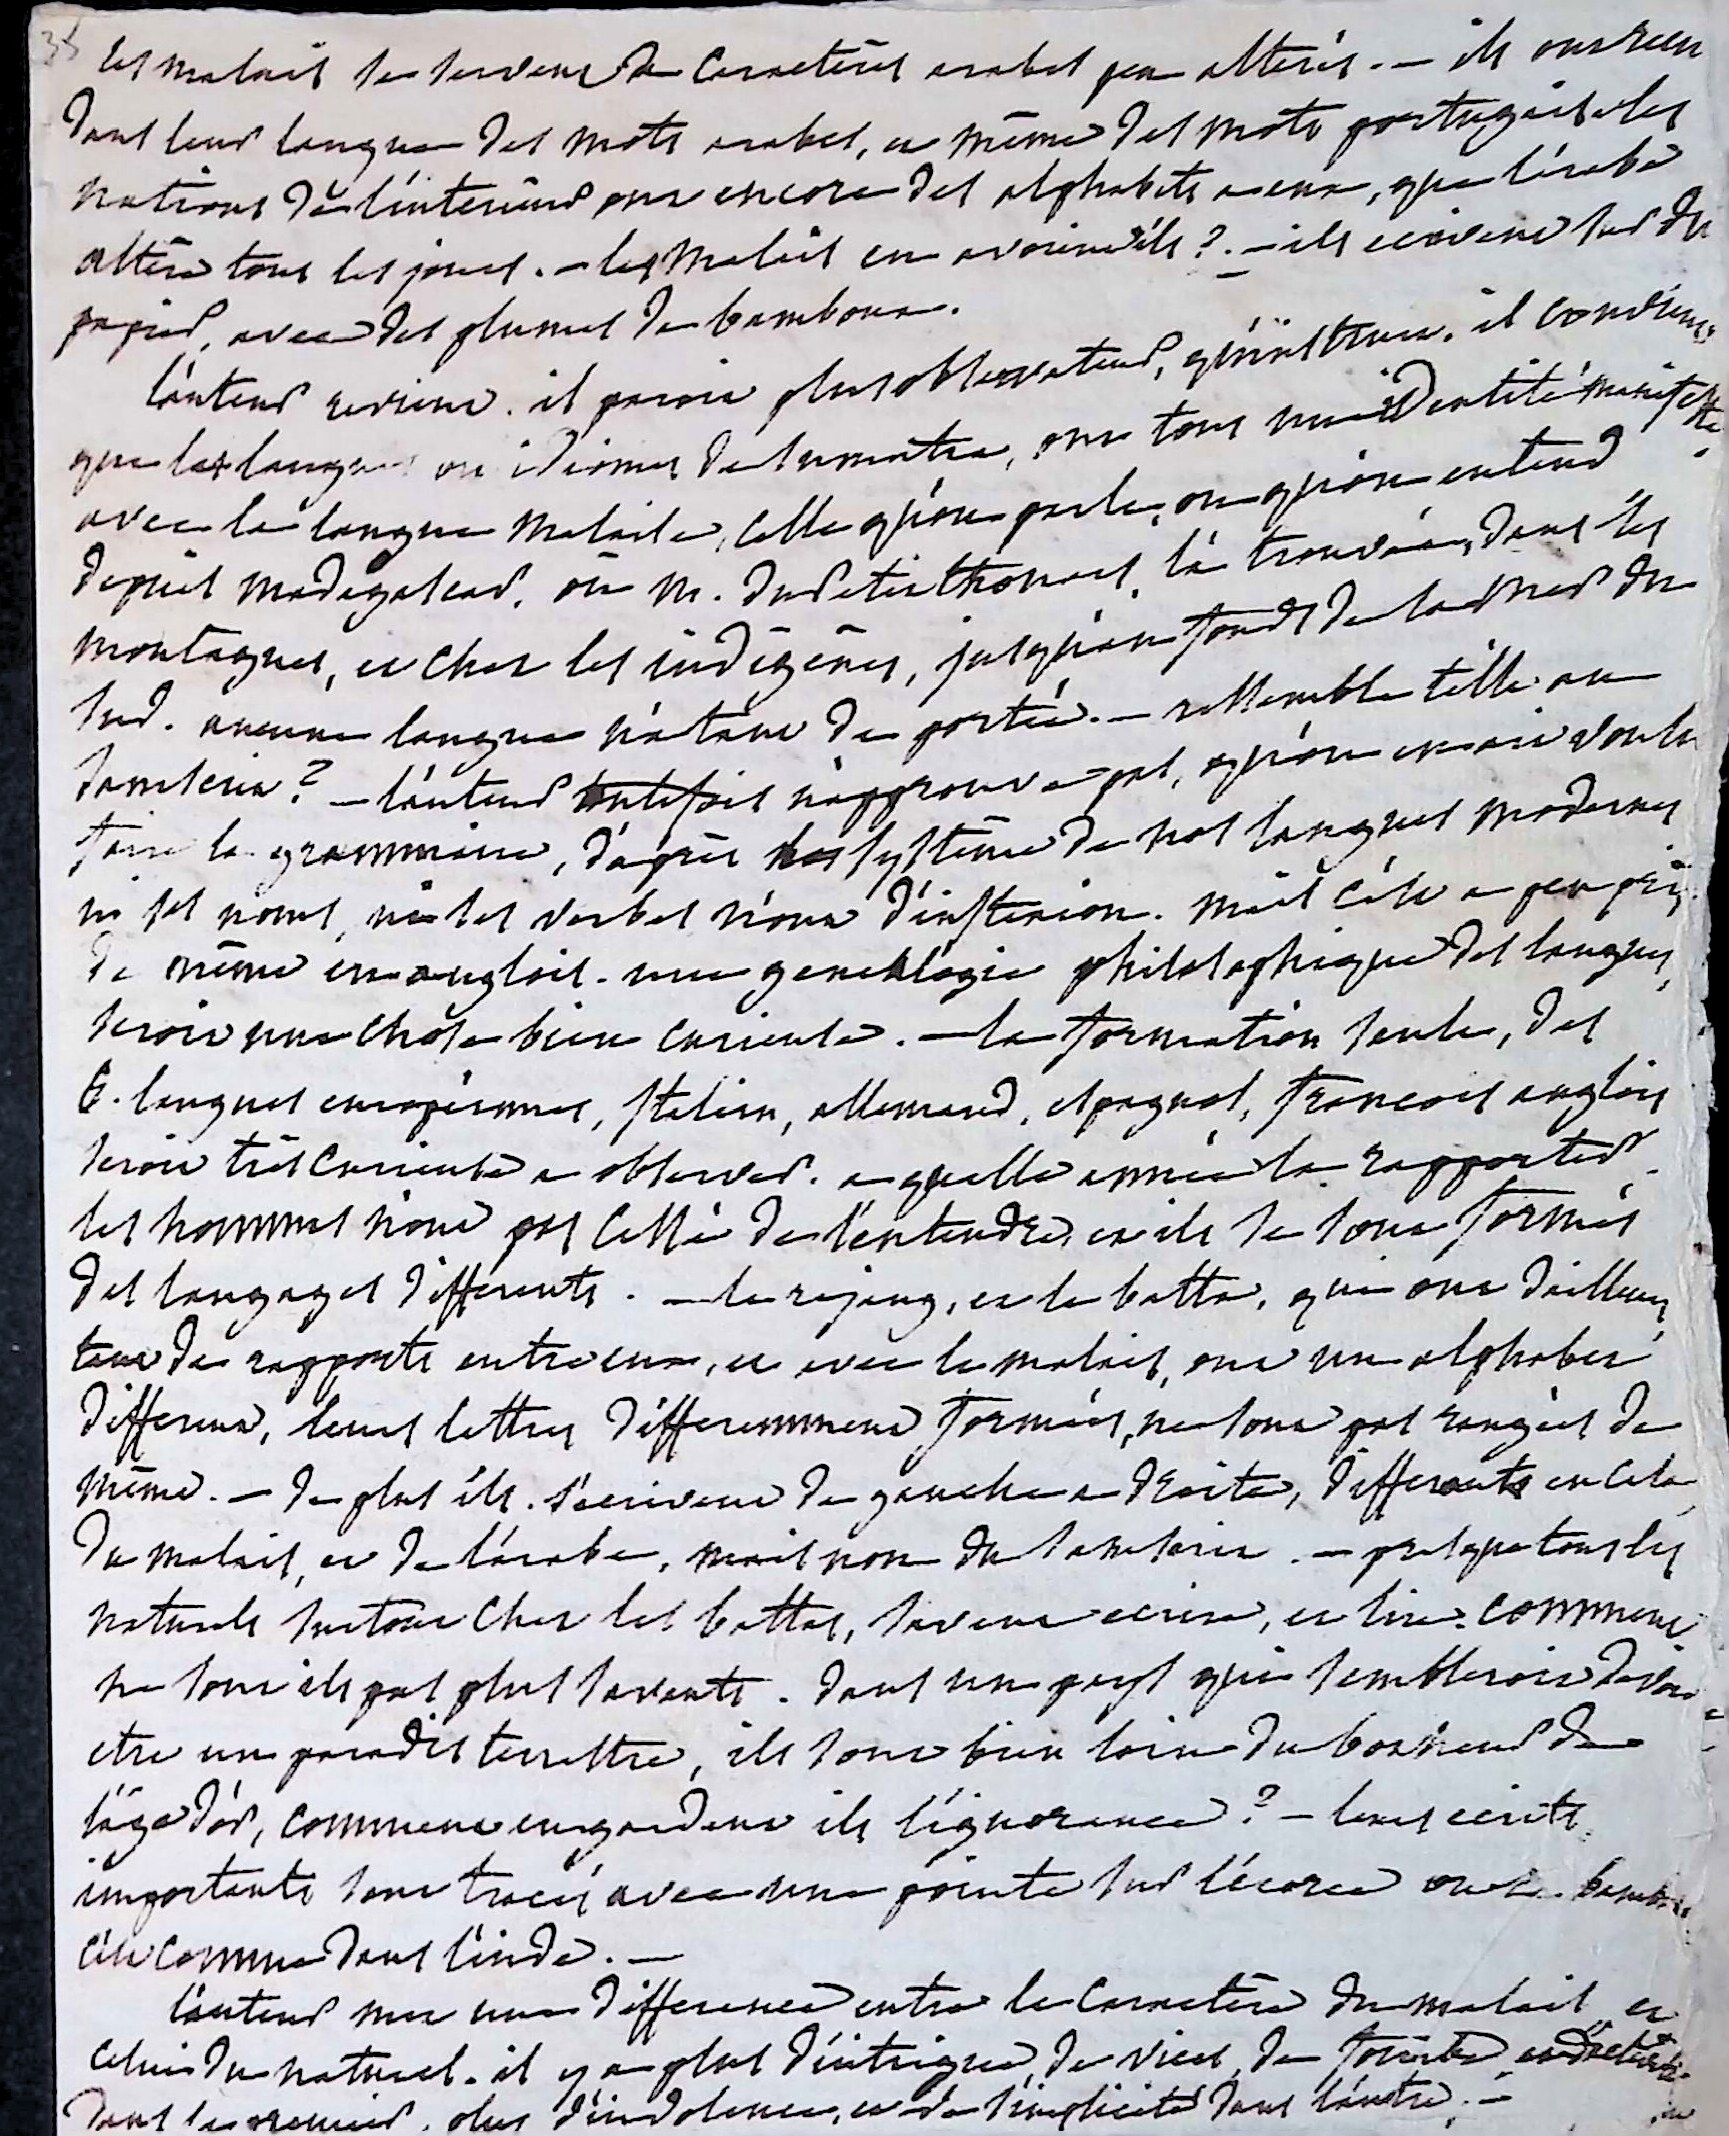 35 les malais se servent de caractères arabes peu altérés. – ils ont reçu
dans leur langue des mots arabes, et même des mots portugais. les
nations de l'intérieur ont encore des alphabets a eux, que l'arabe
altère tous les jours. – les malais en avoient ils ?. – ils ecrivent sur du
papier, avec des plumes de bamboux.
l'auteur revient. il paroit plus observateur, qu'instruit. il convient
que les langues ou idiomes de sumatra, ont tous une identité manifeste
avec la langue malaise, celle qu'on parle, ou qu'on entend
depuis madagascar, ou M. du petit thouars, l'a trouvée, dans les
montagnes, et chez les indigènes, jusqu'au fonds de la mer du
sud. aucune langue n'a tant de portée. – ressemble t'elle au
samscrit ? – l'auteur toutefois n'approuve pas, qu'on en ait voulu
faire la grammaire, d'après le système de nos langues modernes
ni les noms, ni les verbes n'ont d'inflexion. mais c'est a peu près
de même en anglois. une genealogie philosophique des langues,
seroit une chose bien curieuse. – la formation seule, des
6. langues européennes, Italien, allemand, espagnol, françois anglois
seroit très curieuse a observer. a quelle année la rapporter.
les hommes n'ont pas cessé de s'entendre, et ils se sont formés
des langages differents. – le rejang, et le batta, qui ont d'ailleurs
tant de rapports entre eux, et avec le malais, ont un alphabet
different, leurs lettres differemment formées, ne sont pas rangées de
même. – de plus ils s'ecrivent de gauche a droite, differents en cela
du malais, et de l'arabe, mais non du samscrit. – presque tous les
naturels surtout chez les battas, savent ecrire, et lire. comment
ne sont ils pas plus savants. dans un pays qui sembleroit devoir
etre un paradis terrestre, ils sont bien loin du bonheur de
l'âge d'or, comment en gardent ils l'ignorance ? – leurs ecrits
importants sont tracés avec une pointe sur l'écorce ou le bambou
c'est comme dans l'inde. –
l'auteur met une difference entre le caractère du malais et
celui du naturel. il y a plus d'intrigue, de vices, de
dans le premier, plus d'indolence, et de simplicité dans l'autre. –